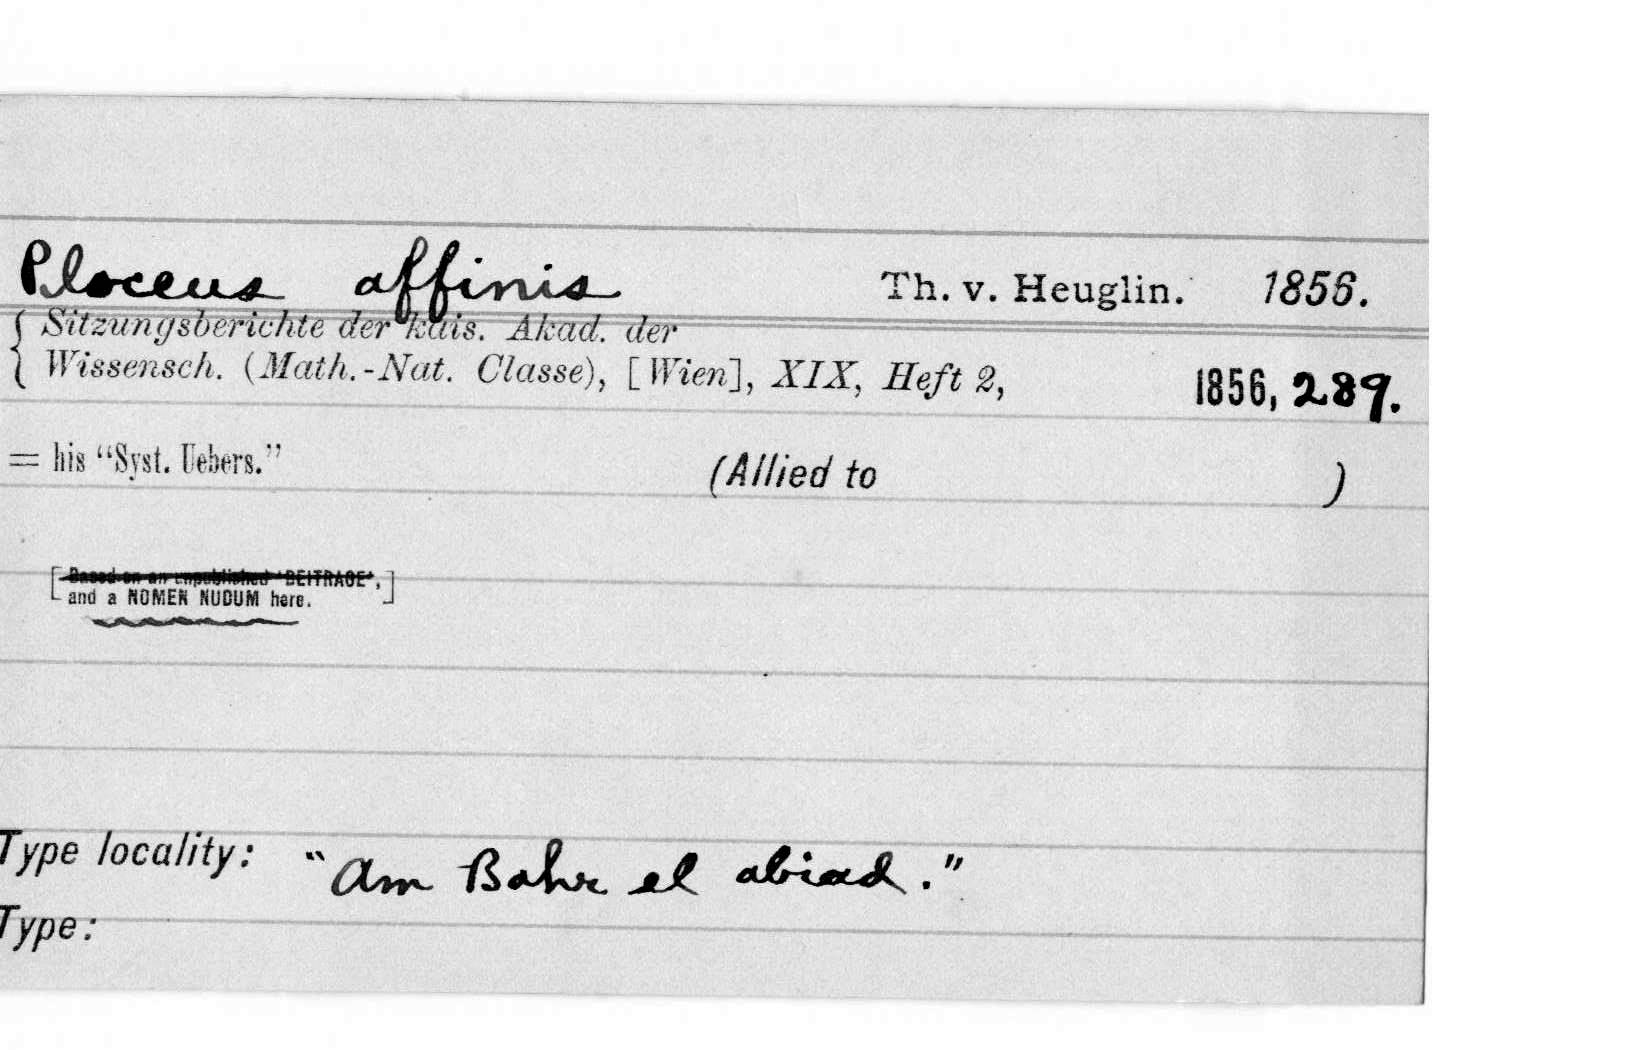 Ploceus affinis Th. v. Heuglin. 1856.
Sitzungsberichte der kais. Akad. der
Wissensch. (Math.-Nat. Classe), [Wien], XIX, Heft 2, 1856, 289.
= his “Syst. Uebers.” (Allied to )
[Based on an unpublished 'BEITRAGE',
and a NOMEN NUDUM here.]
Type locality: "Am Bahr el abiad."
Type: